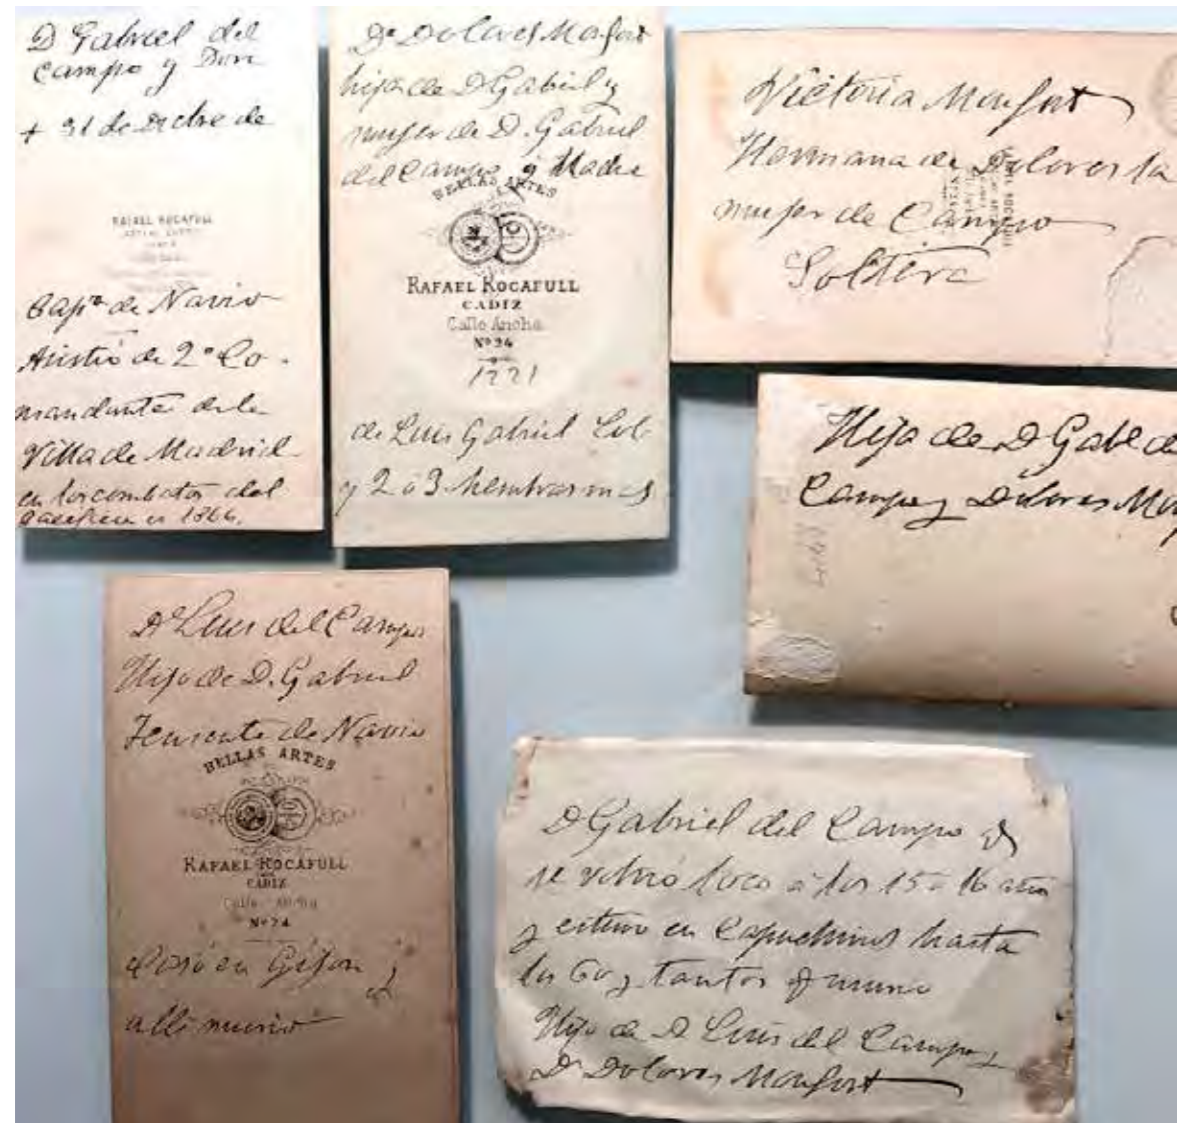 D Gabriel del
Campo y Dorr
+ 31 de Dicbre de
RAFAEL ROCAFULL
Capn de Navio
Asistió de 2º Co-
mandante de la
Villa de Madrid
en los combates del
Pacifico en 1866.
Da Dolores Monfort
hija de D Gabriel y
mujer de D. Gabriel
del Campo y Madre
BELLAS ARTES
RAFAEL ROCAFULL
CADIZ
Calle Ancha
Nº 24
1221
de Luis Gabriel
y 2 ó 3 hembras mas
Victoria Monfort
Hermana de Dolores la
mujer de Campo
Soltera
Hija de D Gabl de
Campo y Dolores Mo
Dn Luis del Campo
Hijo de D. Gabriel
Teniente de Navio
BELLAS ARTES
RAFAEL ROCAFULL
CADIZ
Calle Ancha
Nº 24
Casó en Gijon y
alli murió
D Gabriel del Campo
se volvió loco á los 15 ó 16 años
y estuvo en Capuchinos hasta
los 60 y tantos q murió
Hijo de D Luis del Campo y
Da Dolores Monfort